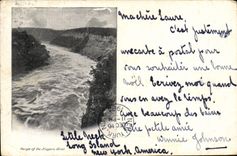 Ma chère Laure,
C'est justement
une carte à postal pour
vous souhaiter une bonne
Noël. Ecrivez moi quand
vous en avez le temps.
Avec beaucoup des baisers
Votre petite amie
Winnie Johnson
Gorge of the Niagara River
Little Neck
Long Island
New York, America.